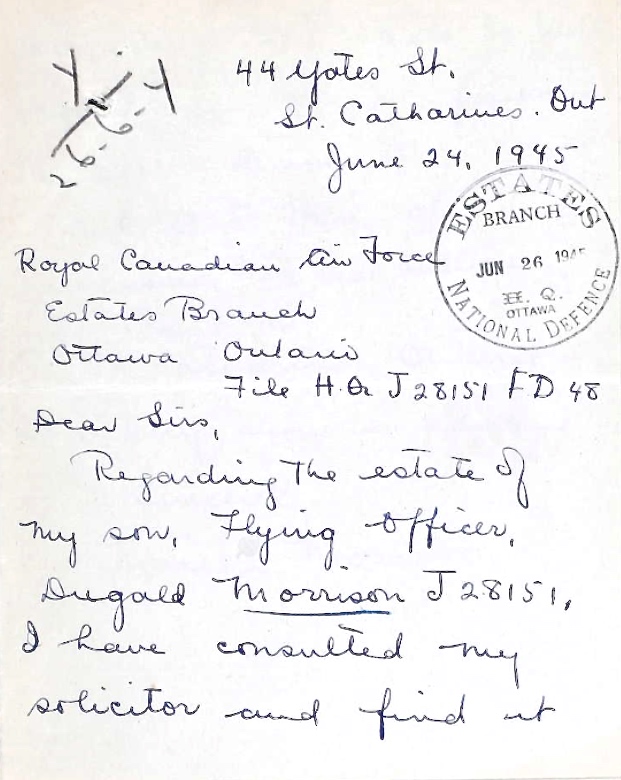 44 Yates St.
St. Catharines. Ont
June 24, 1945
26.6.
ESTATES
BRANCH
JUN 26 1945
H. Q.
OTTAWA
NATIONAL DEFENCE
Royal Canadian Air Force
Estates Branch
Ottawa Ontario
File H.Q J28151 FD 48
Dear Sirs,
Regarding the estate of
my son, Flying Officer,
Dugald Morrison J28151,
I have consulted my
solicitor and find it